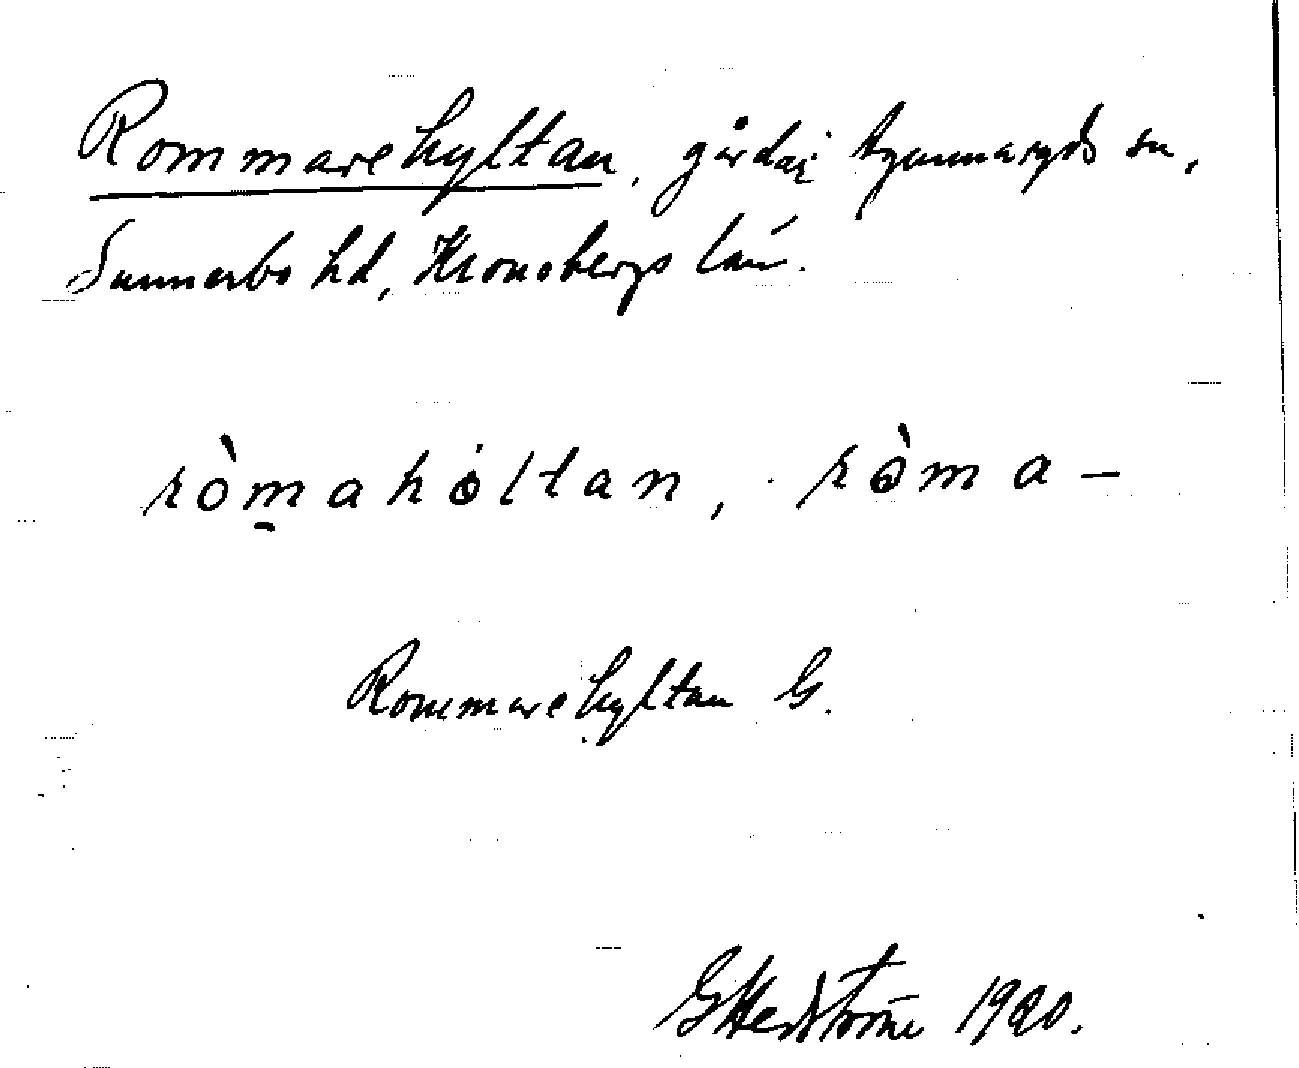 Rommarehyltan, gårdar, Agunnaryds sn,
Sunnerbo hd, Kronobergs län.
ròmahòltan, ròma –
Rommarehyltan G.
G Hedström 1920.